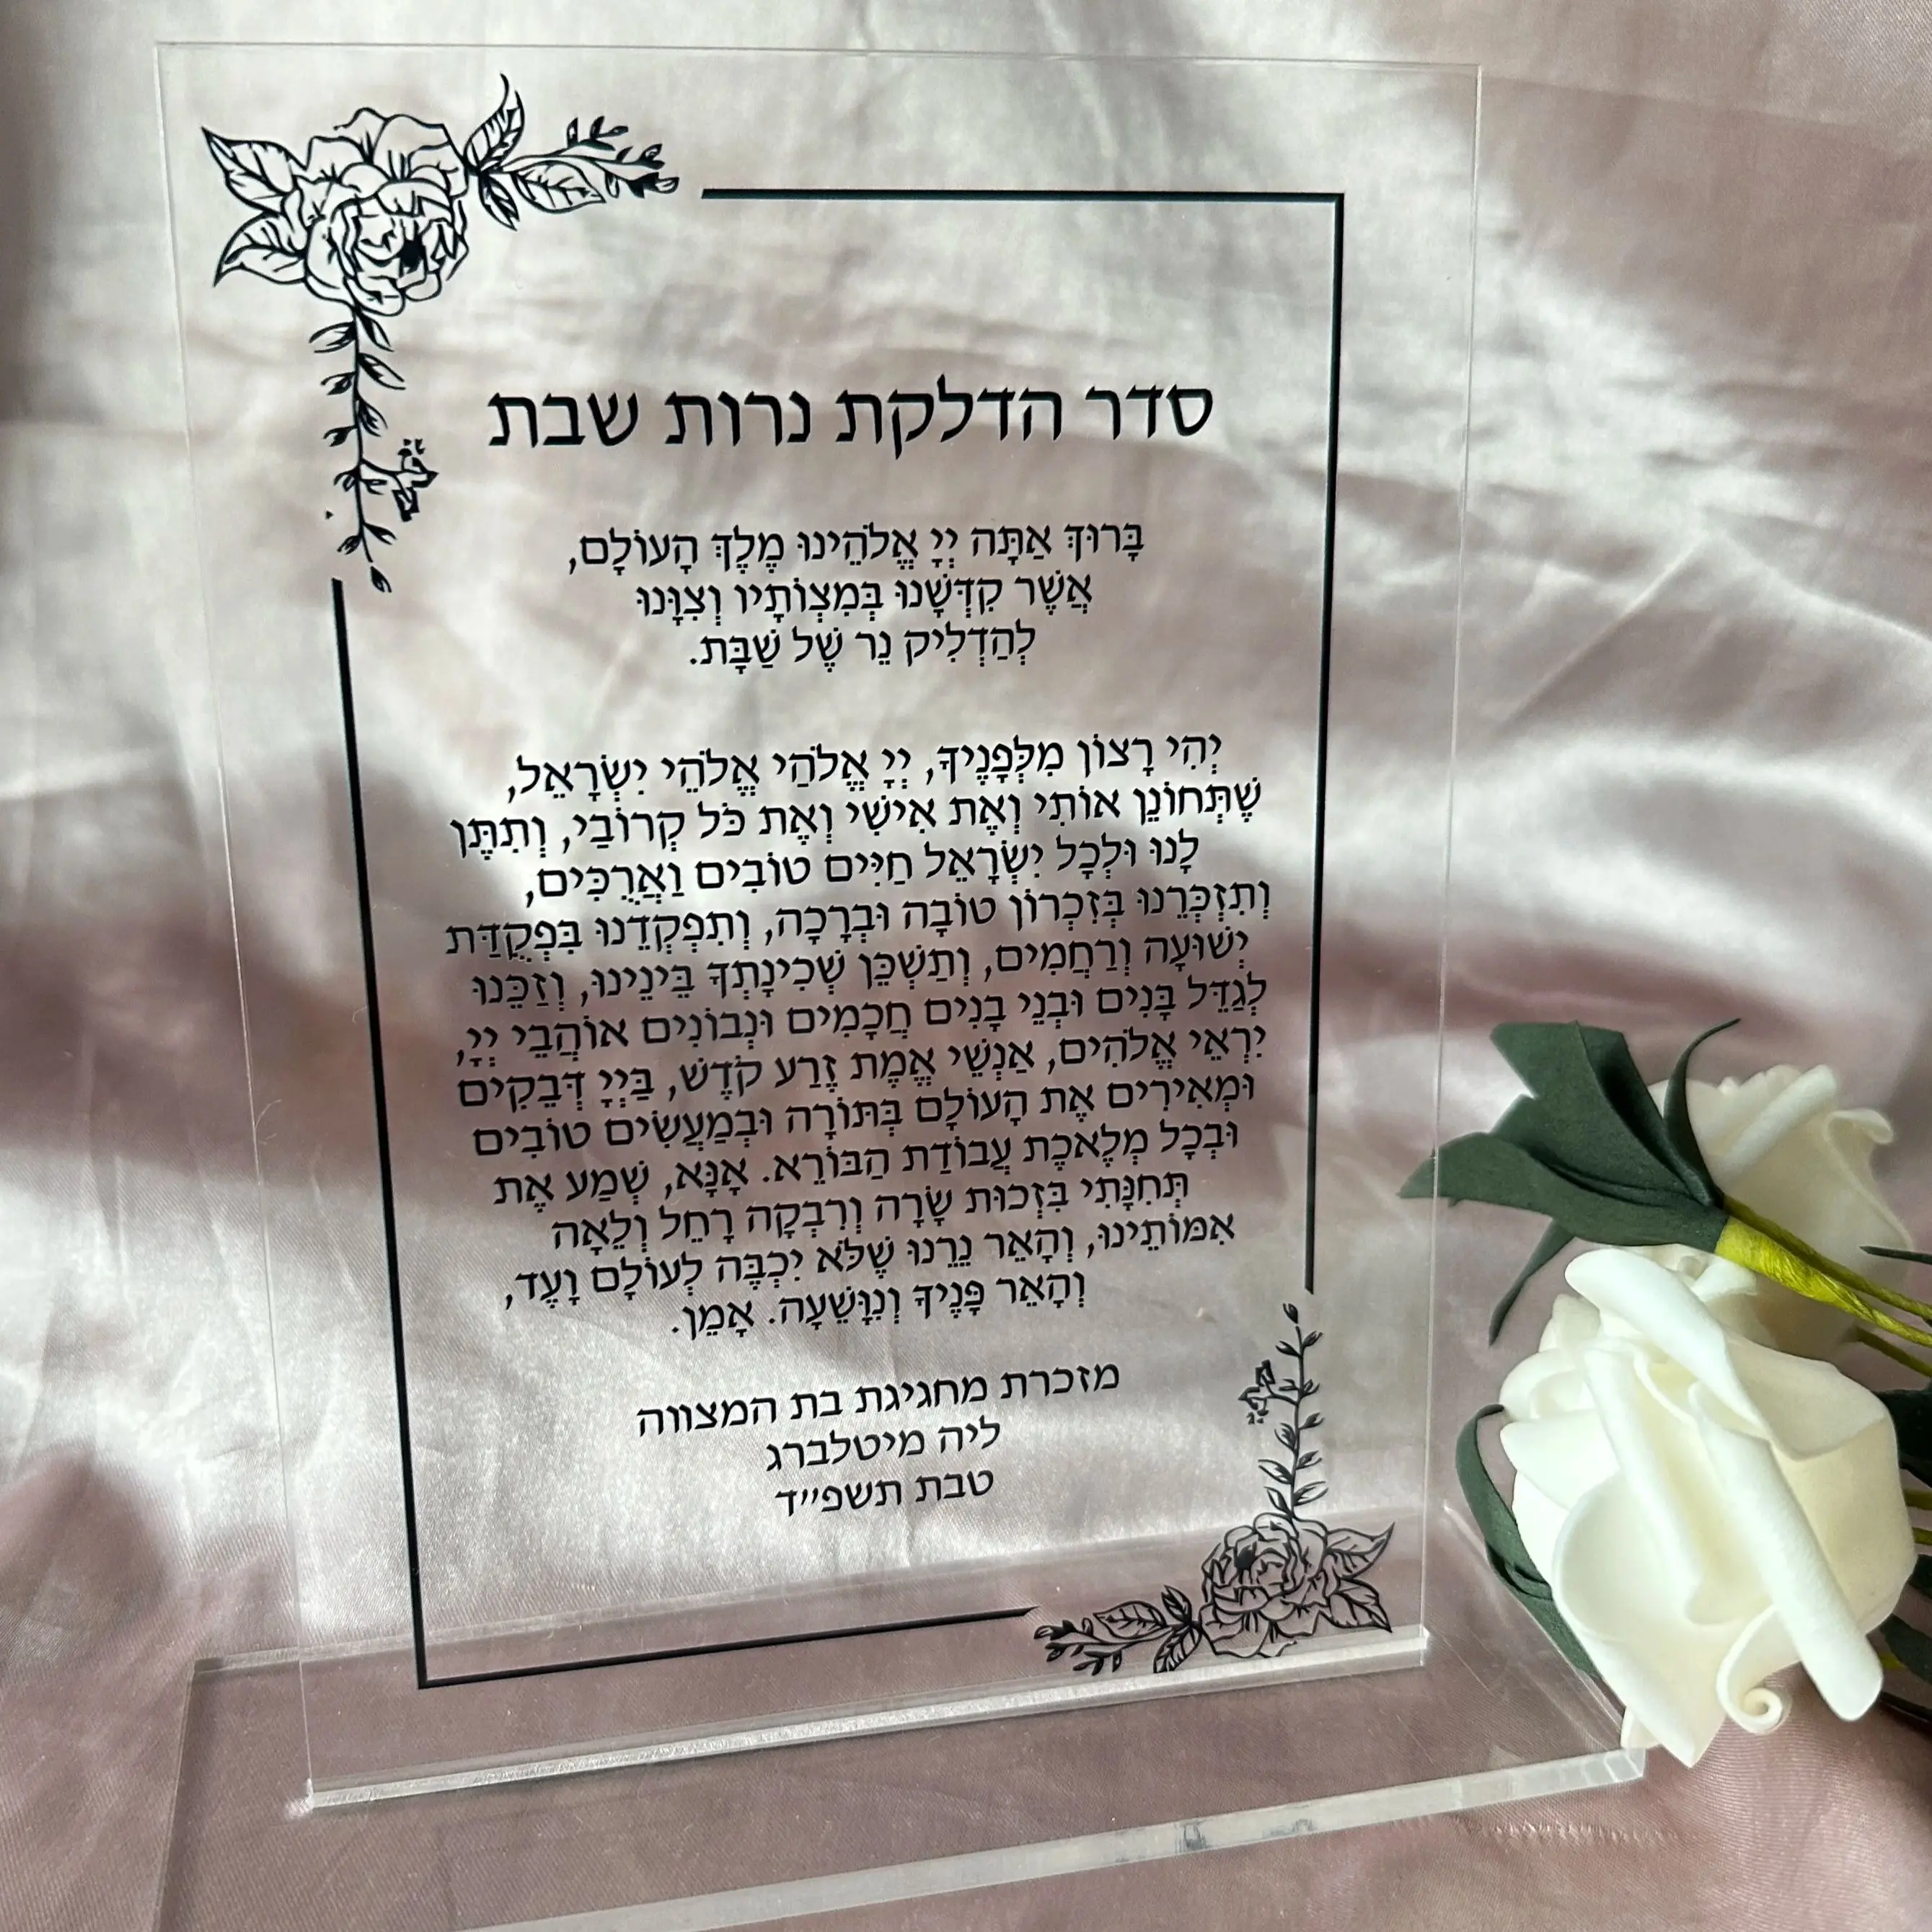 סדר הדלקת נרות שבת
בָּרוּךְ אַתָּה יְיָ אֱלֹהֵינוּ מֶלֶךְ הָעוֹלָם,
אֲשֶׁר קִדְּשָׁנוּ בְּמִצְוֹתָיו וְצִוָּנוּ
לְהַדְלִיק נֵר שֶׁל שַׁבָּת.
יְהִי רָצוֹן מִלְּפָנֶיךָ, יְיָ אֱלֹהַי אֱלֹהֵי יִשְׂרָאֵל,
שֶׁתְּחוֹנֵן אוֹתִי וְאֶת אִישִׁי וְאֶת כֹּל קְרוֹבַי, וְתִתֶּן
לָנוּ וּלְכָל יִשְׂרָאֵל חַיִּים טוֹבִים וַאֲרֻכִּים,
וְתִזְכְּרֵנוּ בְּזִכְרוֹן טוֹבָה וּבְרָכָה, וְתִפְקְדֵנוּ בִּפְקֻדַּת
יְשׁוּעָה וְרַחֲמִים, וְתַשְׁכֵּן שְׁכִינָתְךָ בֵּינֵינוּ, וְזַכֵּנוּ
לְגַדֵּל בָּנִים וּבְנֵי בָנִים חֲכָמִים וּנְבוֹנִים אוֹהֲבֵי יְיָ,
יִרְאֵי אֱלֹהִים, אַנְשֵׁי אֱמֶת זֶרַע קֹדֶשׁ, בַּיְיָ דְּבֵקִים
וּמְאִירִים אֶת הָעוֹלָם בְּתּוֹרָה וּבְמַעֲשִׂים טוֹבִים
וּבְכָל מְלֶאכֶת עֲבוֹדַת הַבּוֹרֵא. אָנָּא, שְׁמַע אֶת
תְּחִנָּתִי בִּזְכוּת שָׂרָה וְרִבְקָה רָחֵל וְלֵאָה
אִמּוֹתֵינוּ, וְהָאֵר נֵרֵנוּ שֶׁלֹּא יִכְבֶּה לְעוֹלָם וָעֶד,
וְהָאֵר פָּנֶיךָ וְנִוָּשֵׁעָה. אָמֵן.
מזכרת מחגיגת בת המצווה
ליה מיטלברג
טבת תשפ״ד